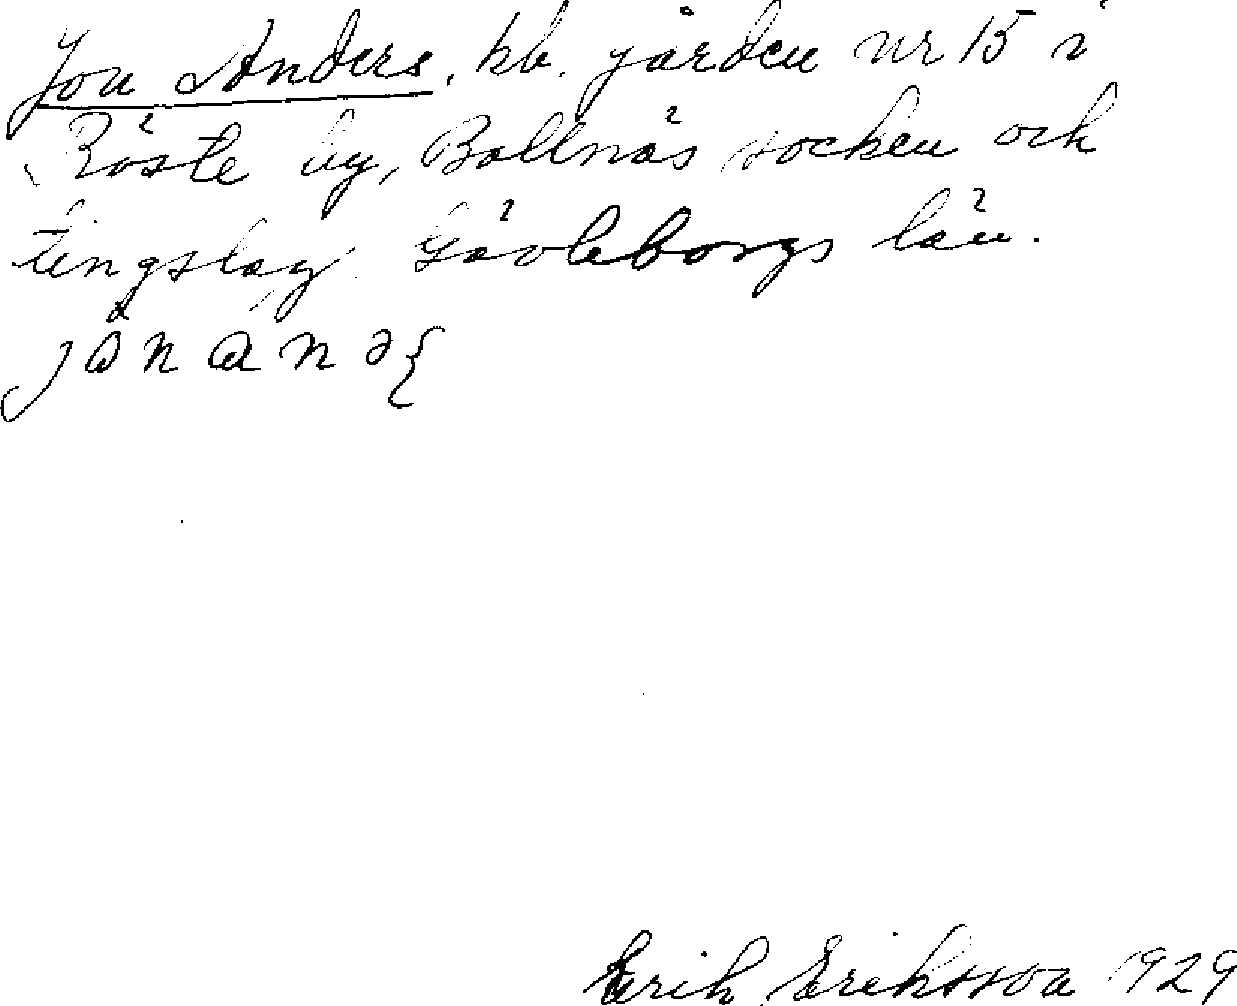 Jon Anders, kb. gården nr 15 i
Röste by, Bollnäs socken och
tingslag. Gävleborgs län.
Erik Eriksson 1929